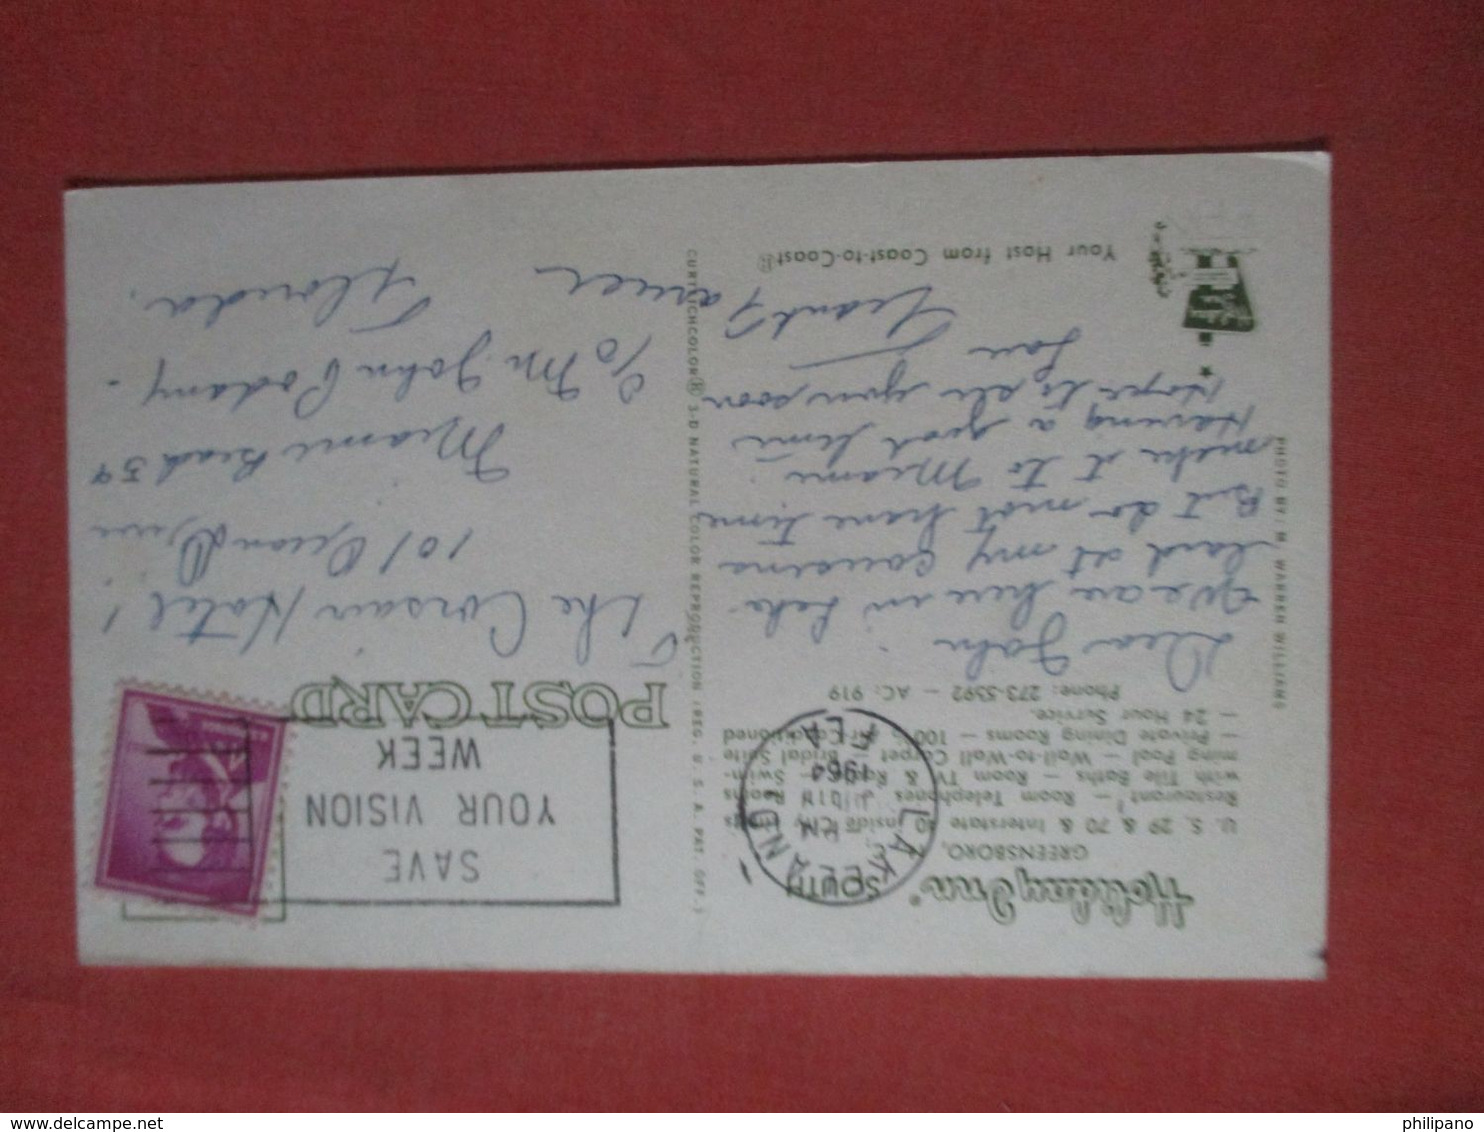 Holiday Inn®
GREENSBORO,
U. S. 29 & 70 & Interstate 40 inside City Limits
Restaurant — Room Telephones Rooms
with Tile Baths — Room TV & Radio — Swim-
ming Pool — Wall-to-Wall Carpet Bridal Suite
— Private Dining Rooms — 100% Air Conditioned
— 24 Hour Service.
Phone: 273-5592 — AC: 919
Dear John
We are here in Lake
land at my cousins
But do not have time
make it to Miami
Having a good time
Hope to see you soon
Your Host from Coast-to-Coast®
PHOTO BY: M. WARREN WILLIAMS
CURTEICHCOLOR® 3-D NATURAL COLOR REPRODUCTION (REG. U. S. A. PAT. OFF.)
LAKELAND
SOUTH
1964
FLA
SAVE
YOUR VISION
WEEK
POST CARD
The Corsair Hotel
101 Ocean Drive
Miami Beach 39
% Mr. John
Florida.
philipano